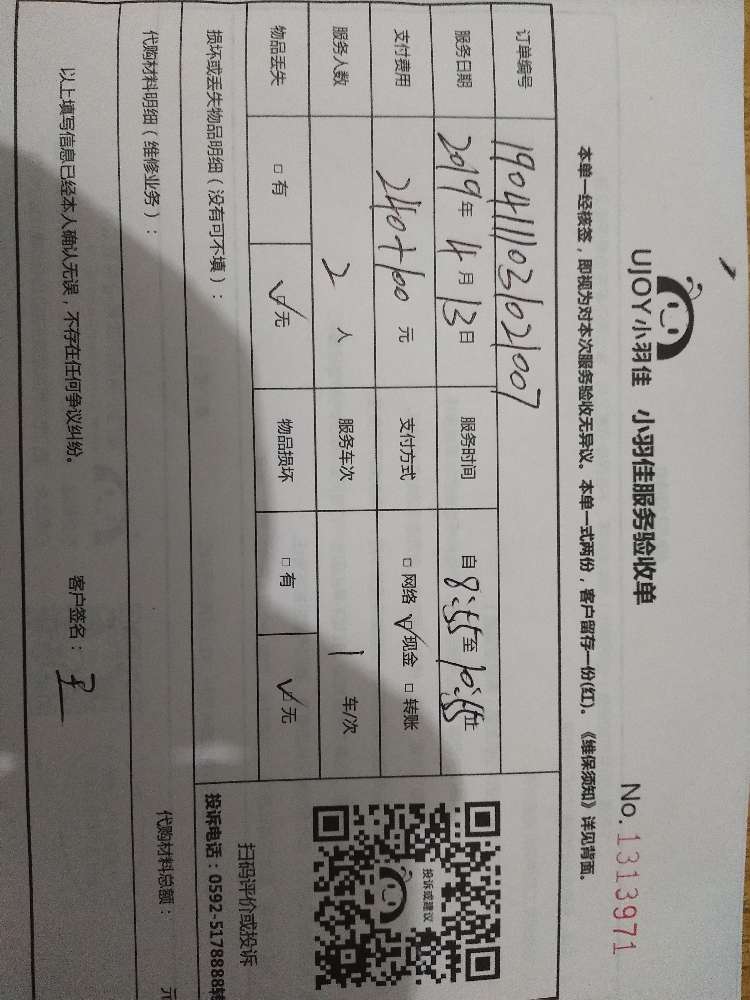 UJOY小羽佳 小羽佳服务验收单
No. 1313971
本单一经核签，即视为对本次服务验收无异议。本单一式两份，客户留存一份(红)。《维保须知》详见背面。
订单编号 190411103102007
服务日期 2019年4月13日 服务时间 自8:55至10:55止
支付费用 240+100元 支付方式 □网络 ☑现金 □转账
服务人数 2人 服务车次 1车/次
物品丢失 □有 ☑无 物品损坏 □有 ☑无
投诉或建议
扫码评价或投诉
投诉电话：0592-5178888转
损坏或丢失物品明细（没有可不填）：
代购材料明细（维修业务）： 代购材料总额： 元
以上填写信息已经本人确认无误，不存在任何争议纠纷。 客户签名：